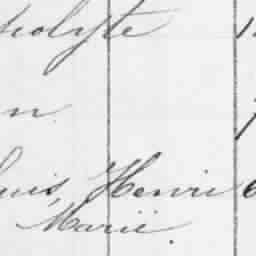 polyte
n
ouis, Henri
Marie.